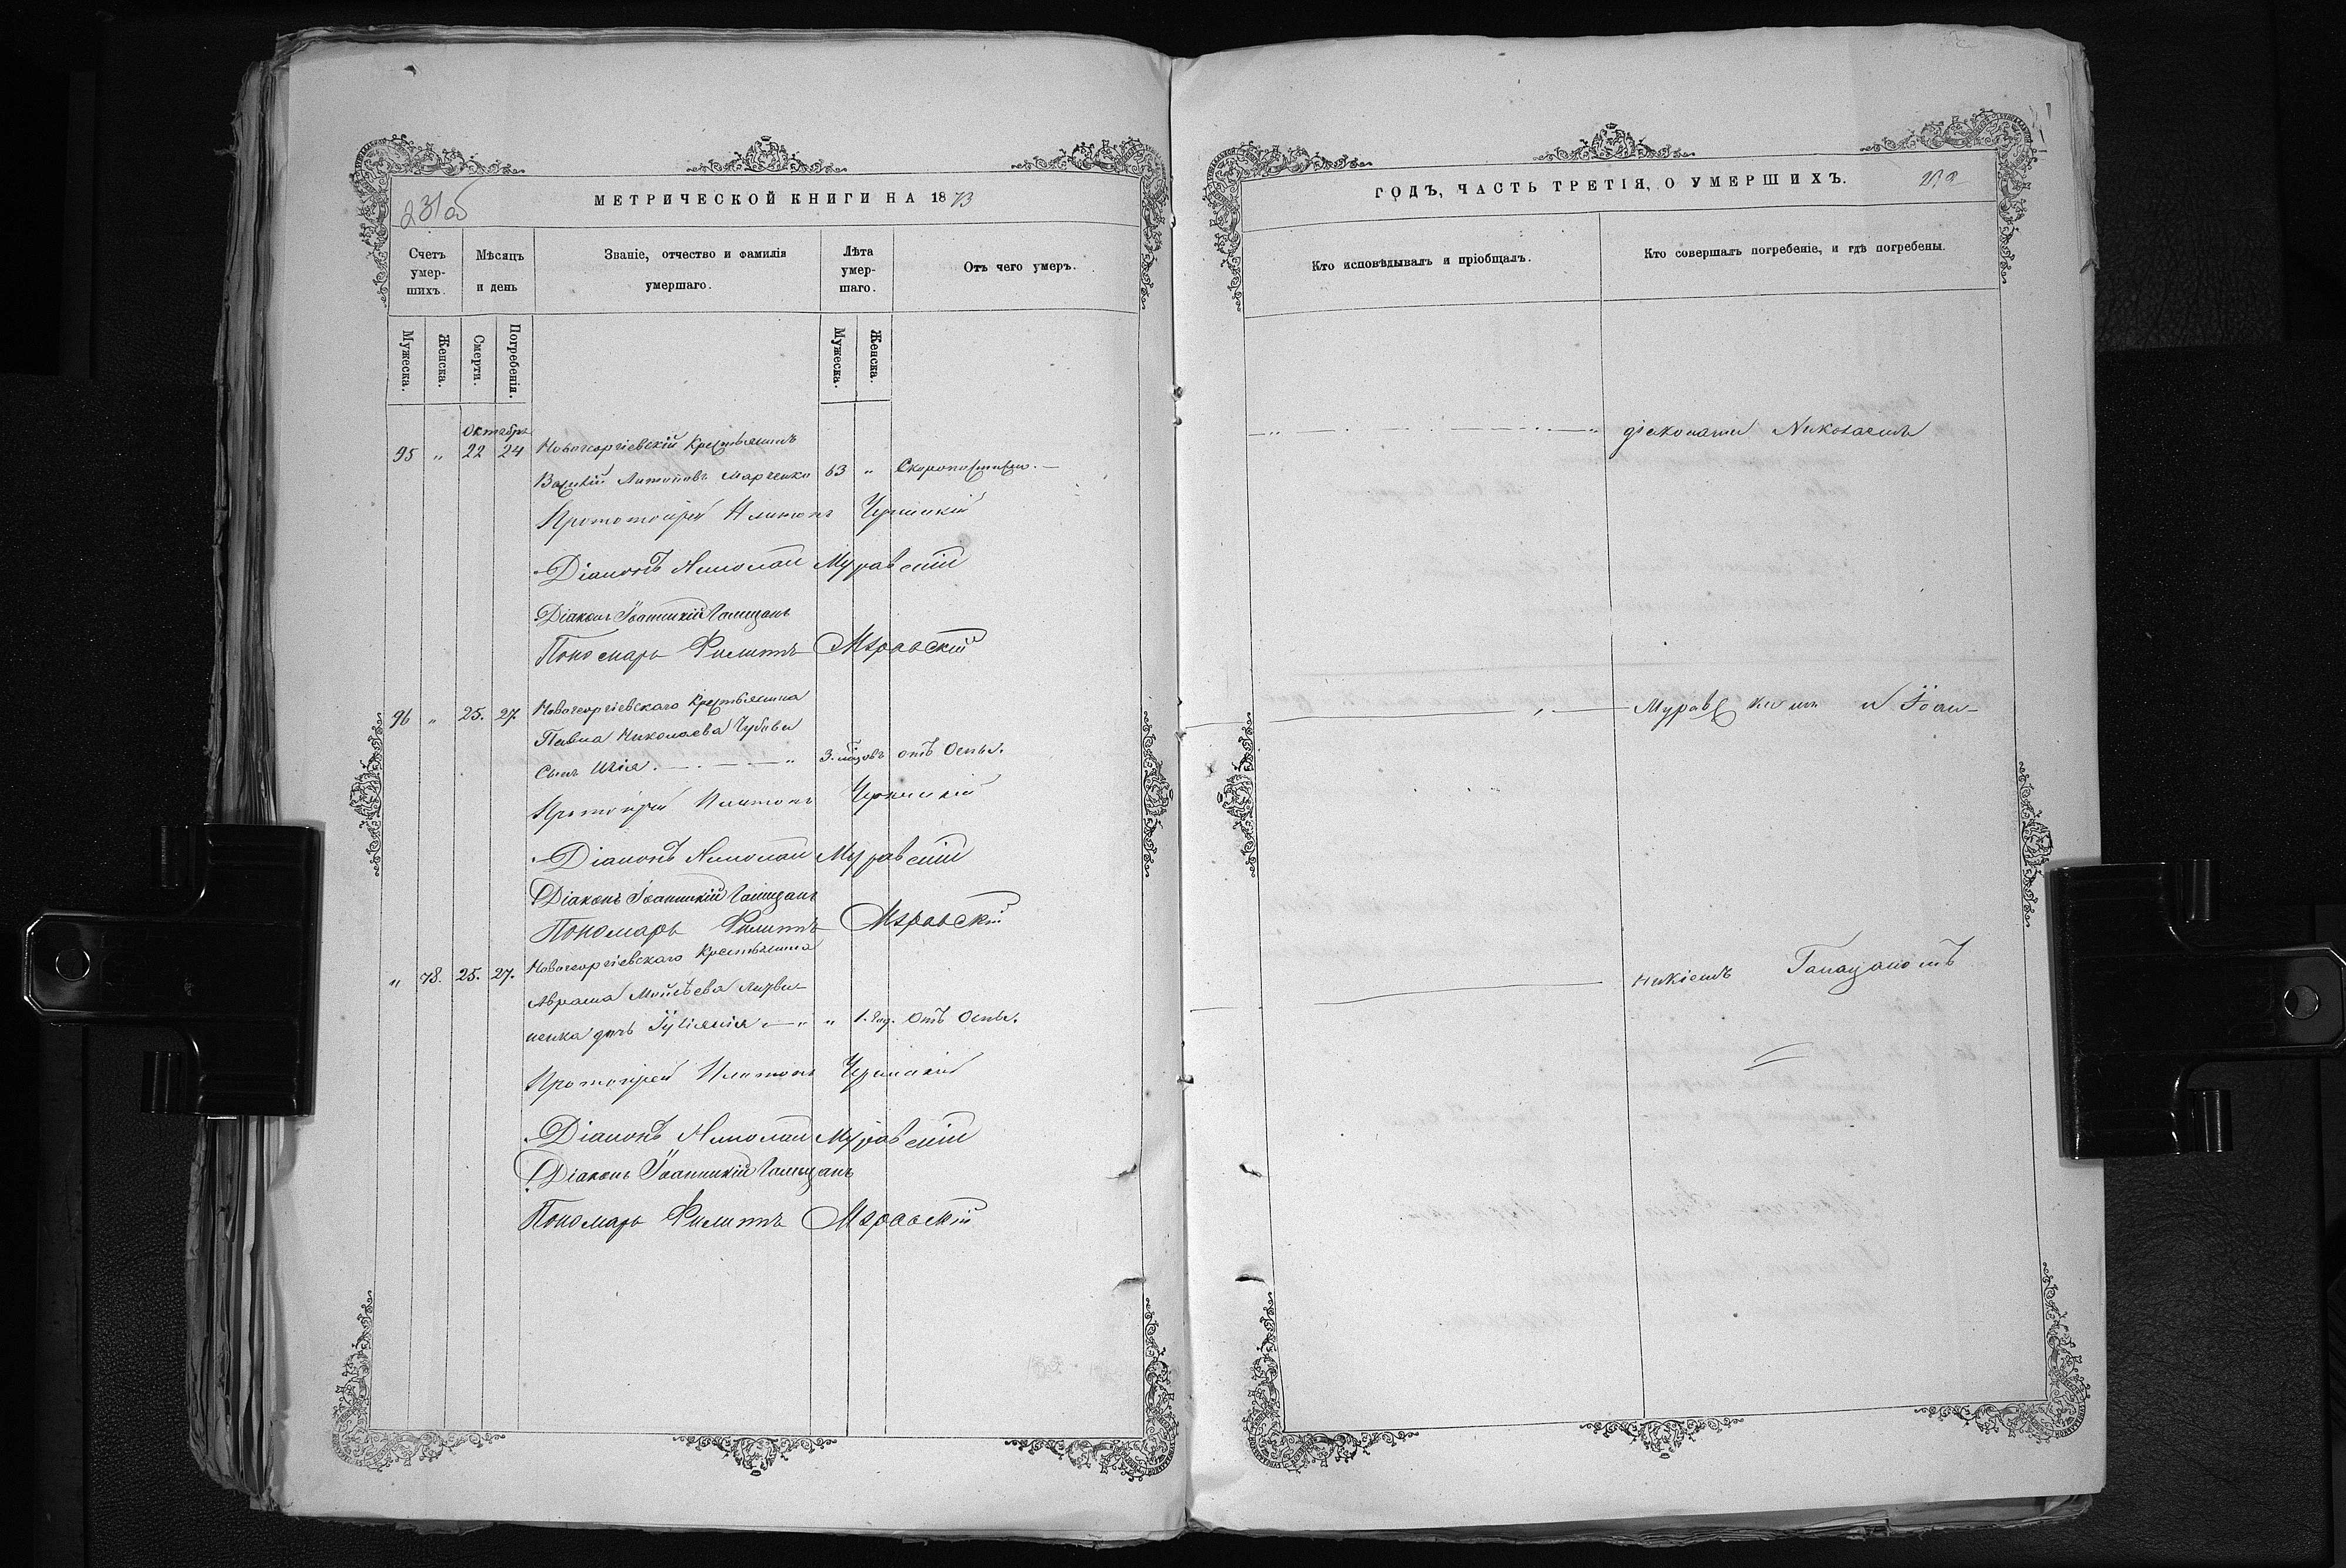 231об
МЕТРИЧЕСКОЙ КНИГИ НА 1873
Счетъ умер-шихъ.
Мѣсяцъ и день
Званіе, отчество и фамилія умершаго.
Лѣта умер-шаго.
Отъ чего умеръ.
Мужеска.
Женска.
Смерти.
Погребенія.
Мужеска.
Женска.
Октябрь
95 " 22 24 Новогеоргіевскій Крестьянинъ
Василій Антоновъ Марченко 63 " Скоропостижно.
Протоіерей Платонъ
Діаконъ Николай Муравскій
Діаконъ Іоанникій Галицанъ
Пономарь Филиппъ Муравскій
96 " 25. 27. Новогеоргіевскаго Крестьянина
Павла Николаева
Сынъ Илія. " 3. отъ Оспы.
Протоіерей Платонъ
Діаконъ Николай Муравскій
Діаконъ Іоанникій Галицанъ
Пономарь Филиппъ Муравскій
" 78. 25. 27. Новогеоргіевскаго Крестьянина
Аврама Моисѣева Литви-
ненка дочь Іуліанія " " 1. год. отъ Оспы.
Протоіерей Платонъ
Діаконъ Николай Муравскій
Діаконъ Іоанникій Галицанъ
Пономарь Филиппъ Муравскій
ГОДЪ, ЧАСТЬ ТРЕТІЯ, О УМЕРШИХЪ. 232
Кто исповѣдывалъ и пріобщалъ.
Кто совершалъ погребеніе, и гдѣ погребены.
діаконами Николаемъ
Муравскимъ и Іоан-
никіемъ Галицаномъ